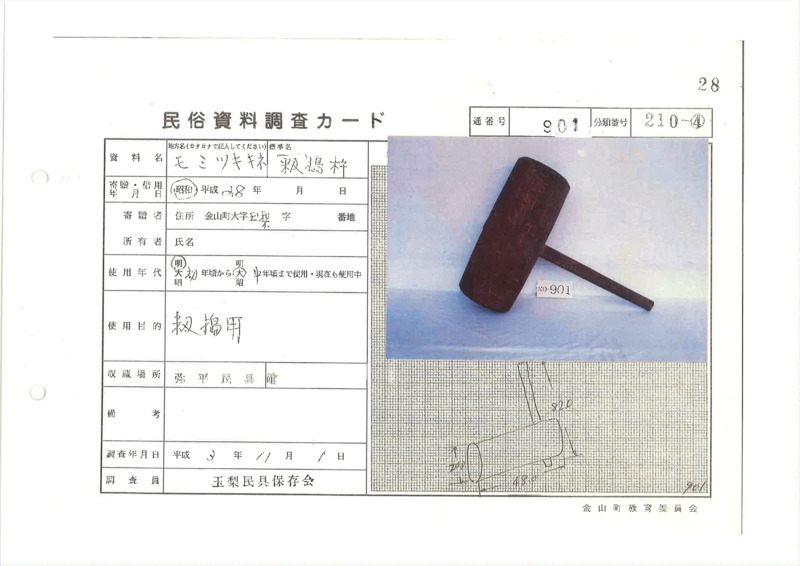 28
民俗資料調査カード
通番号 901 分類番号 210-④
資料名 地方名(カタカナで記入してください) 標準名
モミツキキネ 籾搗杵
寄贈・借用年月日 昭和 平成 28年 月 日
寄贈者 住所 金山町大字玉梨 字 番地
所有者 氏名
使用年代 明大昭 初年頃から 明大昭 中年頃まで使用・現在も使用中
使用目的 籾搗用
収蔵場所 弥平民具館
備考
調査年月日 平成 3年 11月 1日
調査員 玉梨民具保存会
NO 901
820
200
480
901
金山町教育委員会